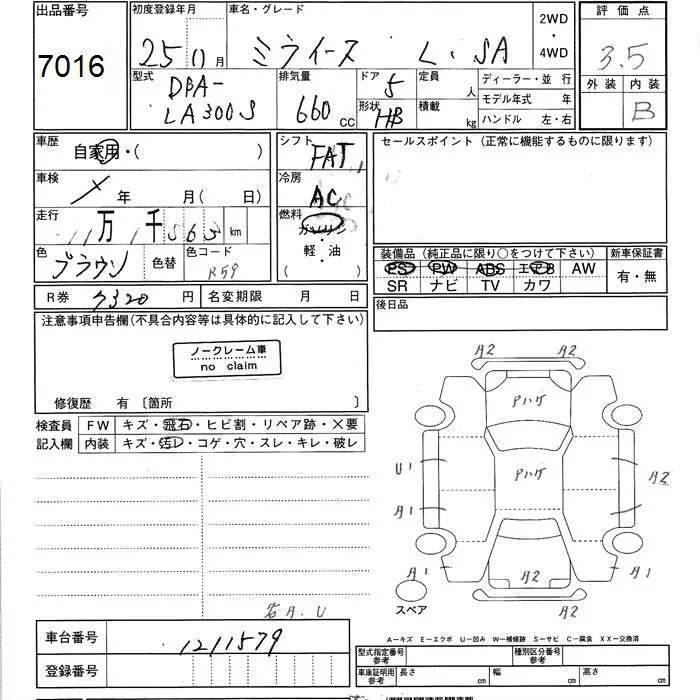 出品番号 初度登録年月 車名・グレード 2WD 評価点
7016 25 0 月 ミライース L・SA ・ 4WD 3.5
型式 排気量 ドア 定員 ディーラー・並 行 外装 内装
DBA- 5 人 モデル年式 年 B
LA300S 660 cc 形状 HB 積載 kg ハンドル 左・右
車歴 自家用・( ) シフト FAT セールスポイント (正常に機能するものに限ります)
車検 年 月( 日) 冷房 AC
走行 11 万 1 千 565 km 燃料 ガソリン
色 ブラウン 色替 色コード R59 軽・油 ( )
装備品 (純正品に限り○をつけて下さい) 新車保証書
PS PW ABS エアB AW 有・無
SR ナビ TV カワ
R券 7320 円 名変期限 月 日 後日品
注意事項申告欄(不具合内容等は具体的に記入して下さい)
ノークレーム車
no claim
修復歴 有 〔箇所 〕
検査員 FW キズ・飛石・ヒビ割・リペア跡・×要
記入欄 内装 キズ・汚レ・コゲ・穴・スレ・キレ・破レ
A2 A2
Pハゲ
U1 Pハゲ A2
A1
A1 A2 A1
スペア A2
A.U
A－キズ E－エクボ U－凹み W－補修跡 S－サビ C－腐食 XX－交換済
車台番号 1211579 型式指定番号 参考 種別区分番号 参考
登録番号 車庫証明用 参考 長さ cm 幅 cm 高さ cm